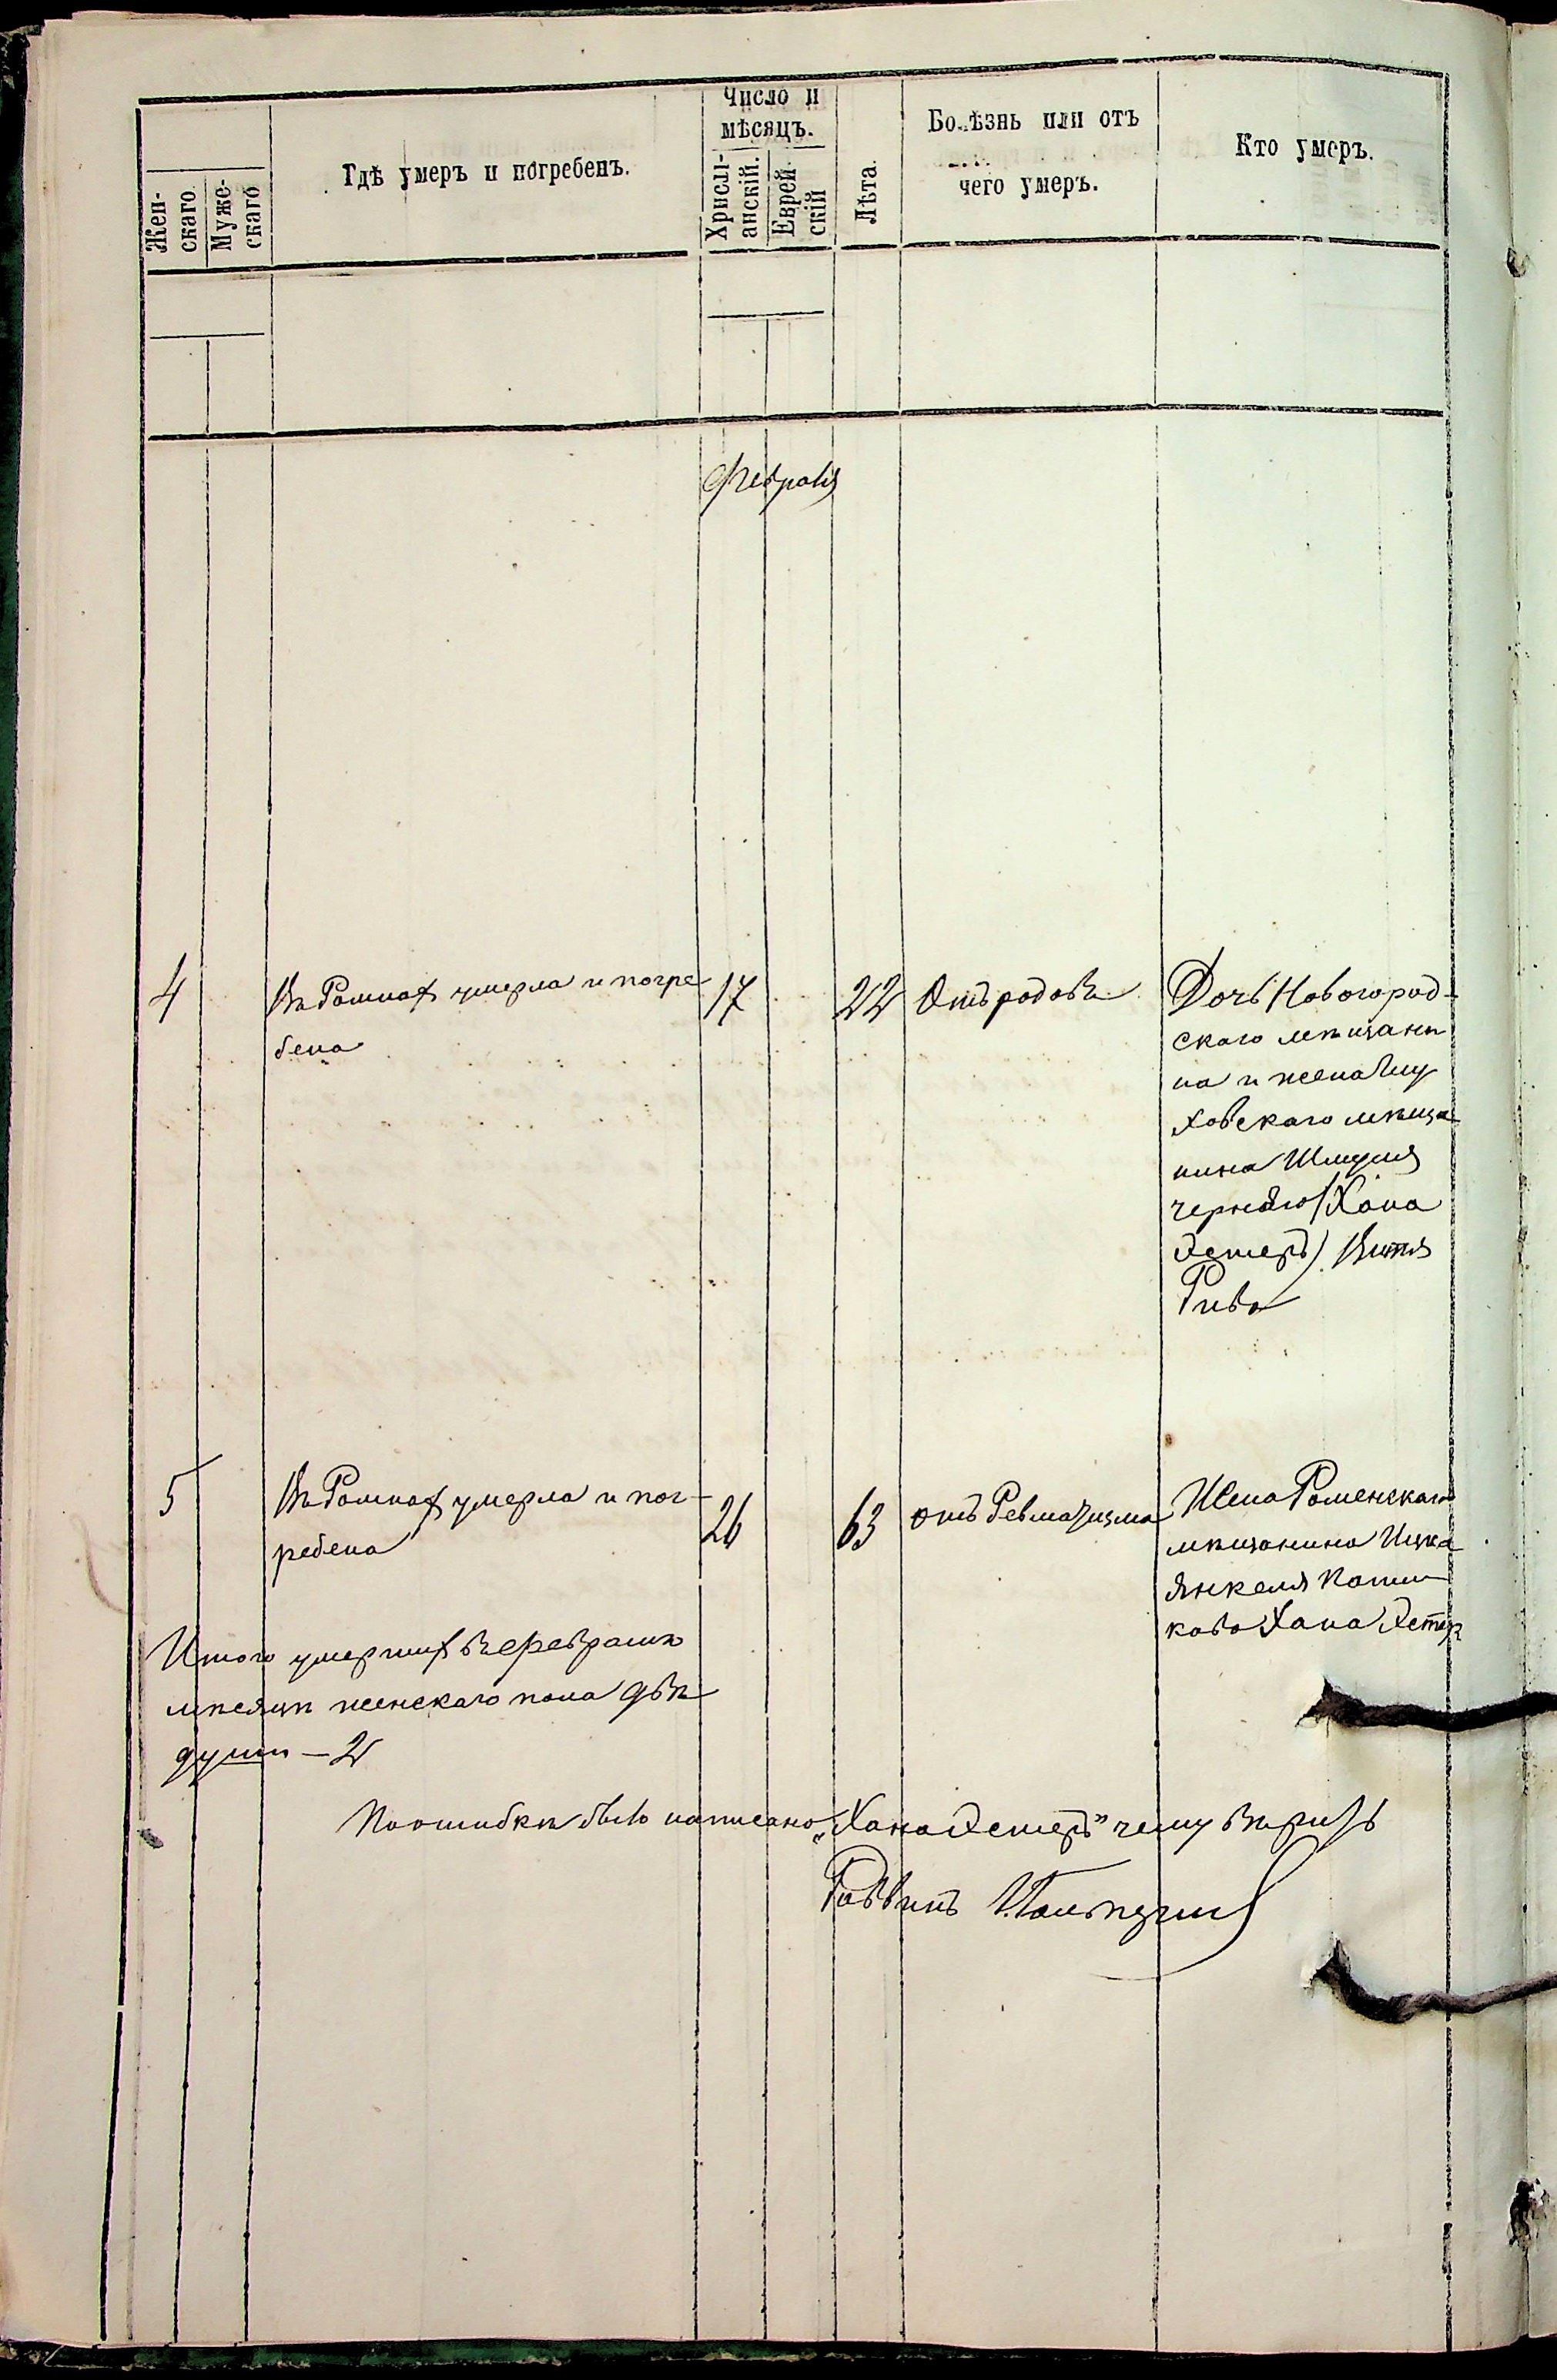 Жен-
скаго
Муже-
скаго
Гдѣ умеръ и погребенъ.
Число и
мѣсяцъ.
Христі-
анскій.
Еврей
скій
Лѣта.
Болѣзнь или отъ
чего умеръ.
Кто умеръ.
Февраля
4
Въ Ромнах умерла и погре
бена
17
22
Отъ родовъ
Дочь Новогород-
скаго мѣщани
на и жена Глу
ховскаго мѣща
нина Шмуля
чернаго (Хана
Эстеръ) Витя
Рива
5
Въ Ромнах умерла и пог-
ребена
26
63
отъ Ревматизма
Жена Роменскаго
мѣщанина Ицка
Янкеля
кова Хана Эстер
Итого умерших въ Февралѣ
мѣсяцѣ женскаго пола двѣ
души - 2
По ошибкѣ было написано „Хана Эстеръ" чему вѣрить
Раввинъ